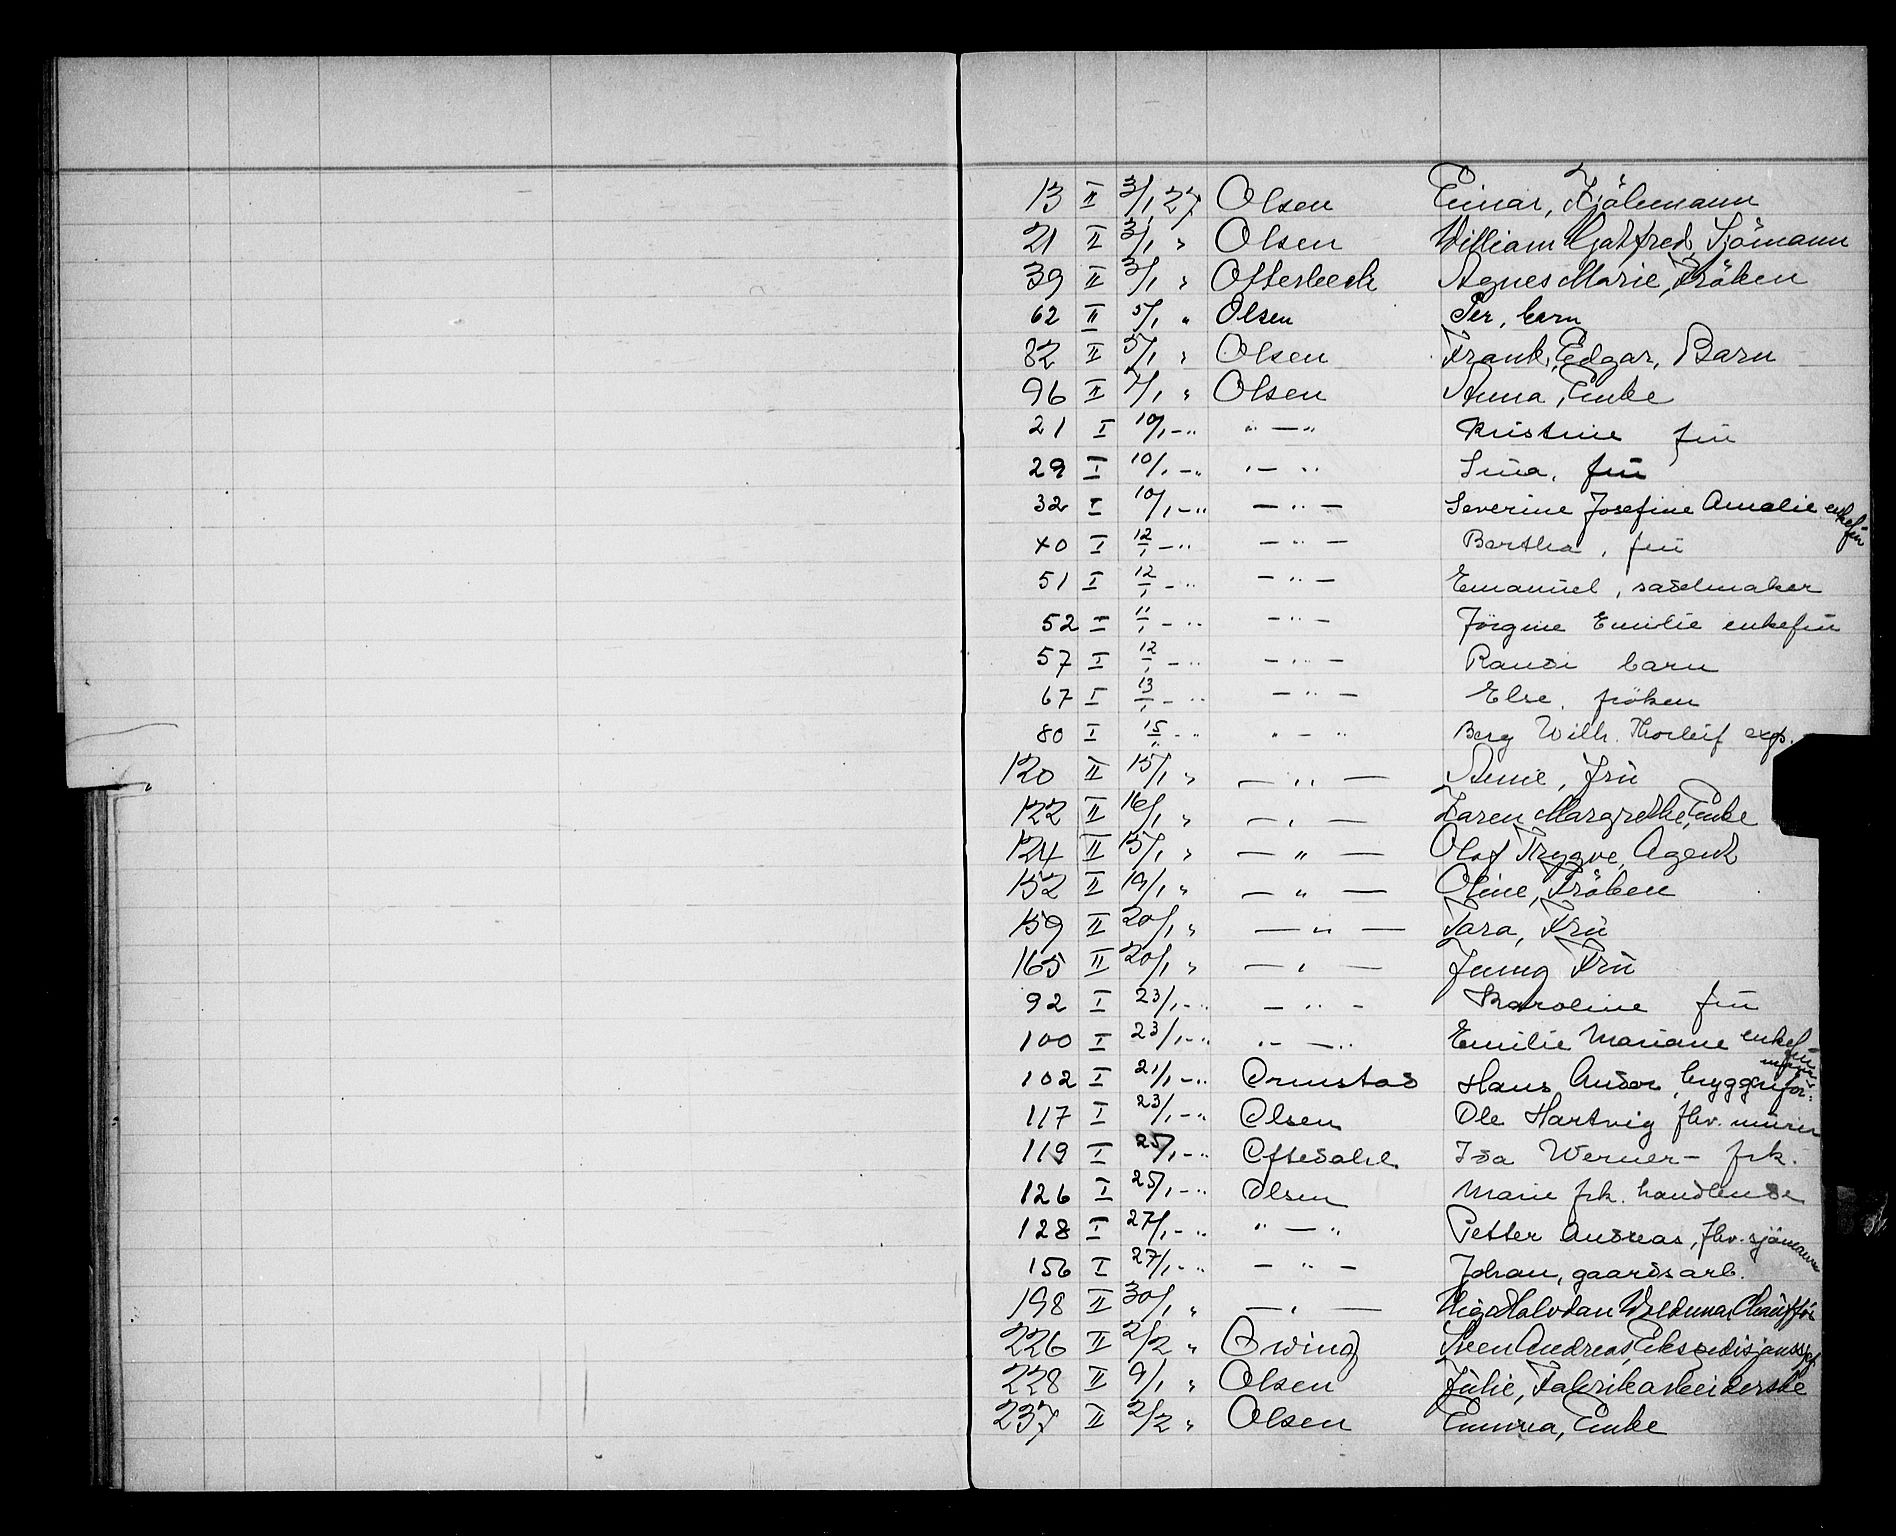 13 II 3/1 27 Olsen Einar, Kjölemann
21 II 3/1 " Olsen William Gotfred, Sjömann
39 II 3/1 " Otterbeck Agnes Marie, Fröken
62 II 5/1 " Olsen Per, barn
82 II 5/1 " Olsen Frank, Edgar, Barn
96 II 7/1 " Olsen Anna, Enke
21 I 10/1 -" " — " Kristine frú
29 I 10/1 -" " — " Sina, frú
32 I 10/1 -" — " — Severine Josefine Amalie enkefrú
40 I 12/1 -" — " — Bertha, frú
51 I 12/1 -" — " — Emanuel, sadelmaker
52 I 11/1 -" — " — Jörgine Emilie enkefrú
57 I 12/1 -" — " — Randi barn
67 I 13/1 -" — " — Else, fröken
80 I 15/" -" " — " Berg Wilh. Thorleif exp.
120 II 15/1 " — " — Annie, Frú
122 II 16/1 " — " — Karen Margrethe, Enke
124 II 15/1 " — " — Olaf Trygve, Agent
152 II 19/1 " — " — Oline, Fröken
159 II 20/1 " — " — Tara, Frú
165 II 20/1 " — " — Jenny Frú
92 I 23/1 -" — " — Karoline frú
100 I 23/1 -" " — " Emilie Mariane enkefrú
102 I 21/1 -" Ormstad Hans Andor, bryggeriformann
117 I 23/1 -" Olsen Ole Hartvig fhv. múrer
119 I 25/1 -" Oftedahl Ida Werner – frk.
126 I 25/1 -" Olsen Marie frk. handlende
128 I 27/1 -" " — " Petter Andreas, fhv. sjömann
156 I 27/1 -" — " — Johan, gaardsarb.
198 II 30/1 " — " — Halvdan Valdemar, Chaúffør
226 II 2/2 " Owing Sven Andreas, Ekspedisjonssjef
228 II 9/1 " Olsen Júlie, Fabrikarbeiderske
237 II 2/2 " Olsen Emma, Enke